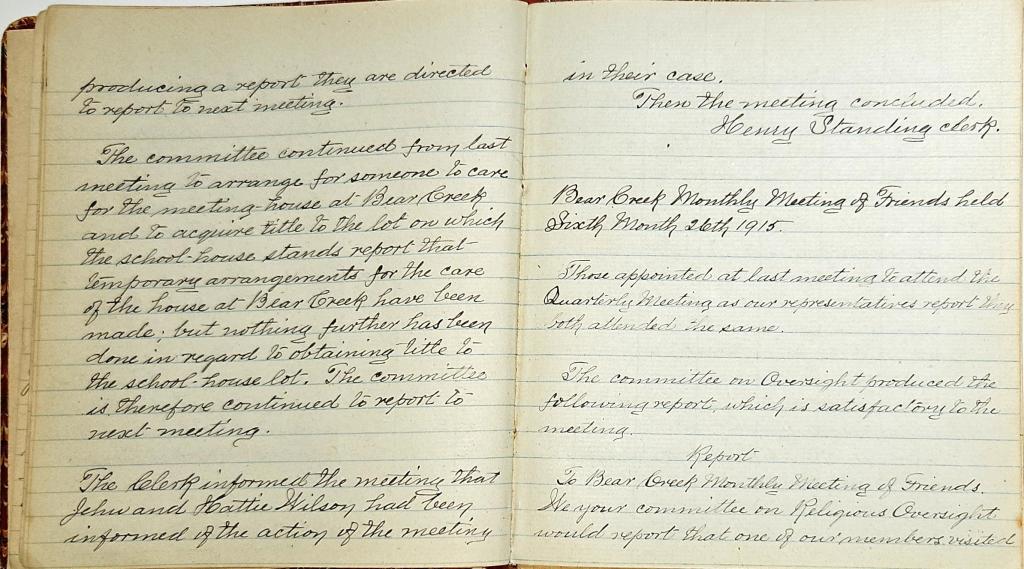 producing a report they are directed
to report to next meeting.
The committee continued from last
meeting to arrange for someone to care
for the meeting-house at Bear Creek
and to acquire title to the lot on which
the school-house stands report that
temporary arrangements for the care
of the house at Bear Creek have been
made; but nothing further has been
done in regard to obtaining title to
the school-house lot. The committee
is therefore continued to report to
next meeting.
The Clerk informed the meeting that
Jehu and Hattie Wilson had been
informed of the action of the meeting
in their case.
Then the meeting concluded.
Henry Standing clerk.
Bear Creek Monthly Meeting of Friends held
Sixth Month 26th 1915.
Those appointed at last meeting to attend the
Quarterly Meeting as our representatives report they
both attended the same.
The committee on Oversight produced the
following report, which is satisfactory to the
meeting.
Report
To Bear Creek Monthly Meeting of Friends.
We your committee on Religious Oversight
would report that one of our members visited